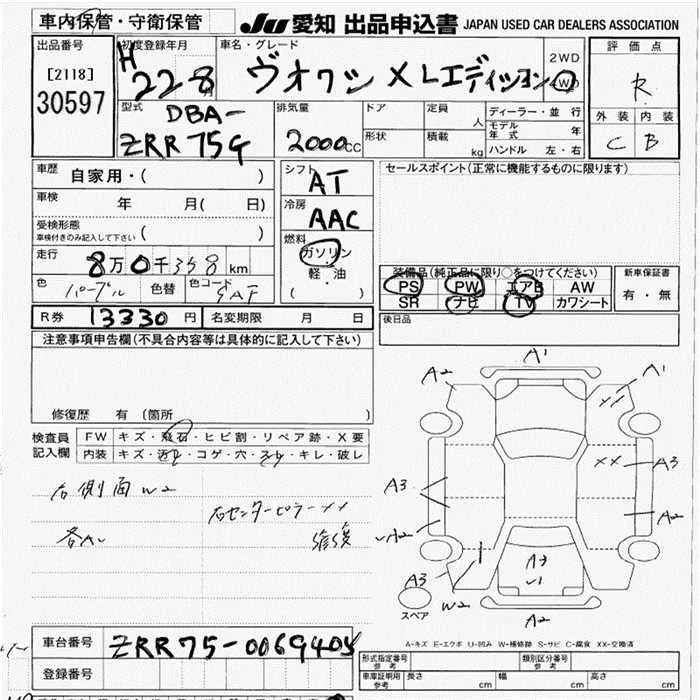 車内保管・守衛保管
JU 愛知 出品申込書 JAPAN USED CAR DEALERS ASSOCIATION
出品番号 初度登録年月 車名・グレード 評価点
[2118]
30597
H 22 8 ヴオクシ XLエディション 2WD 4WD
R
型式 DBA-
ZRR75G
排気量 2000cc
ドア 定員 人 ディーラー・並行
形状 積載 kg モデル年式 年
ハンドル 左・右
外装 内装
C B
車歴 自家用・( )
シフト AT
セールスポイント(正常に機能するものに限ります)
車検 年 月( 日)
冷房 AAC
受検形態 ( )
車検付きのみ記入して下さい
走行 8万0千358km
燃料 ガソリン
軽・油
( )
色 パープル 色替 色コード
装備品(純正品に限り○をつけてください) 新車保証書
PS PW エアB AW 有・無
SR ナビ TV カワシート
R券 13330円 名変期限 月 日
後日品
注意事項申告欄(不具合内容等は具体的に記入して下さい)
修復歴 有 (箇所
検査員 FW キズ・飛石・ヒビ割・リペア跡・X要
記入欄 内装 キズ・汚れ・コゲ・穴・スレ・キレ・破レ
右側面W2
右センターピラーXX
修復
A1
A2
A1
XX
A3
A3
A2
A2
A3
A3
W2
A2
スペア
A-キズ E-エクボ U-凹み W-補修跡 S-サビ C-腐食 XX-交換済
車台番号 ZRR75-0069404
登録番号
形式指定番号 参考 類別区分番号 参考
車庫証明用 参考 長さ cm 幅 cm 高さ cm